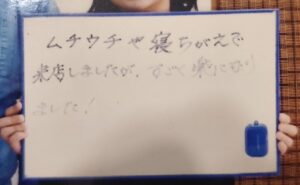 ムチウチや寝ちがえで
来店しましたが、すごく楽になり
ました！